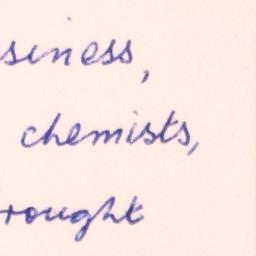 siness,
chemists,
rought